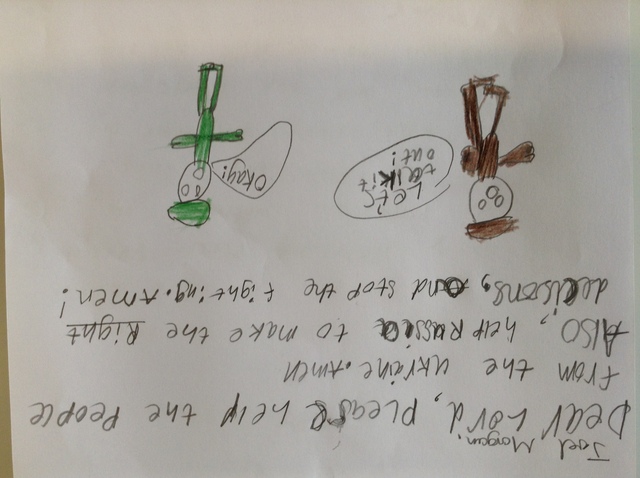 Joel Morgan.
Dear Lord, please help the people
from the ukraine. Amen
Also, help Russia to make the Right
decisons, and stop the fighting. Amen!
Let's
talk it
out!
Okay!